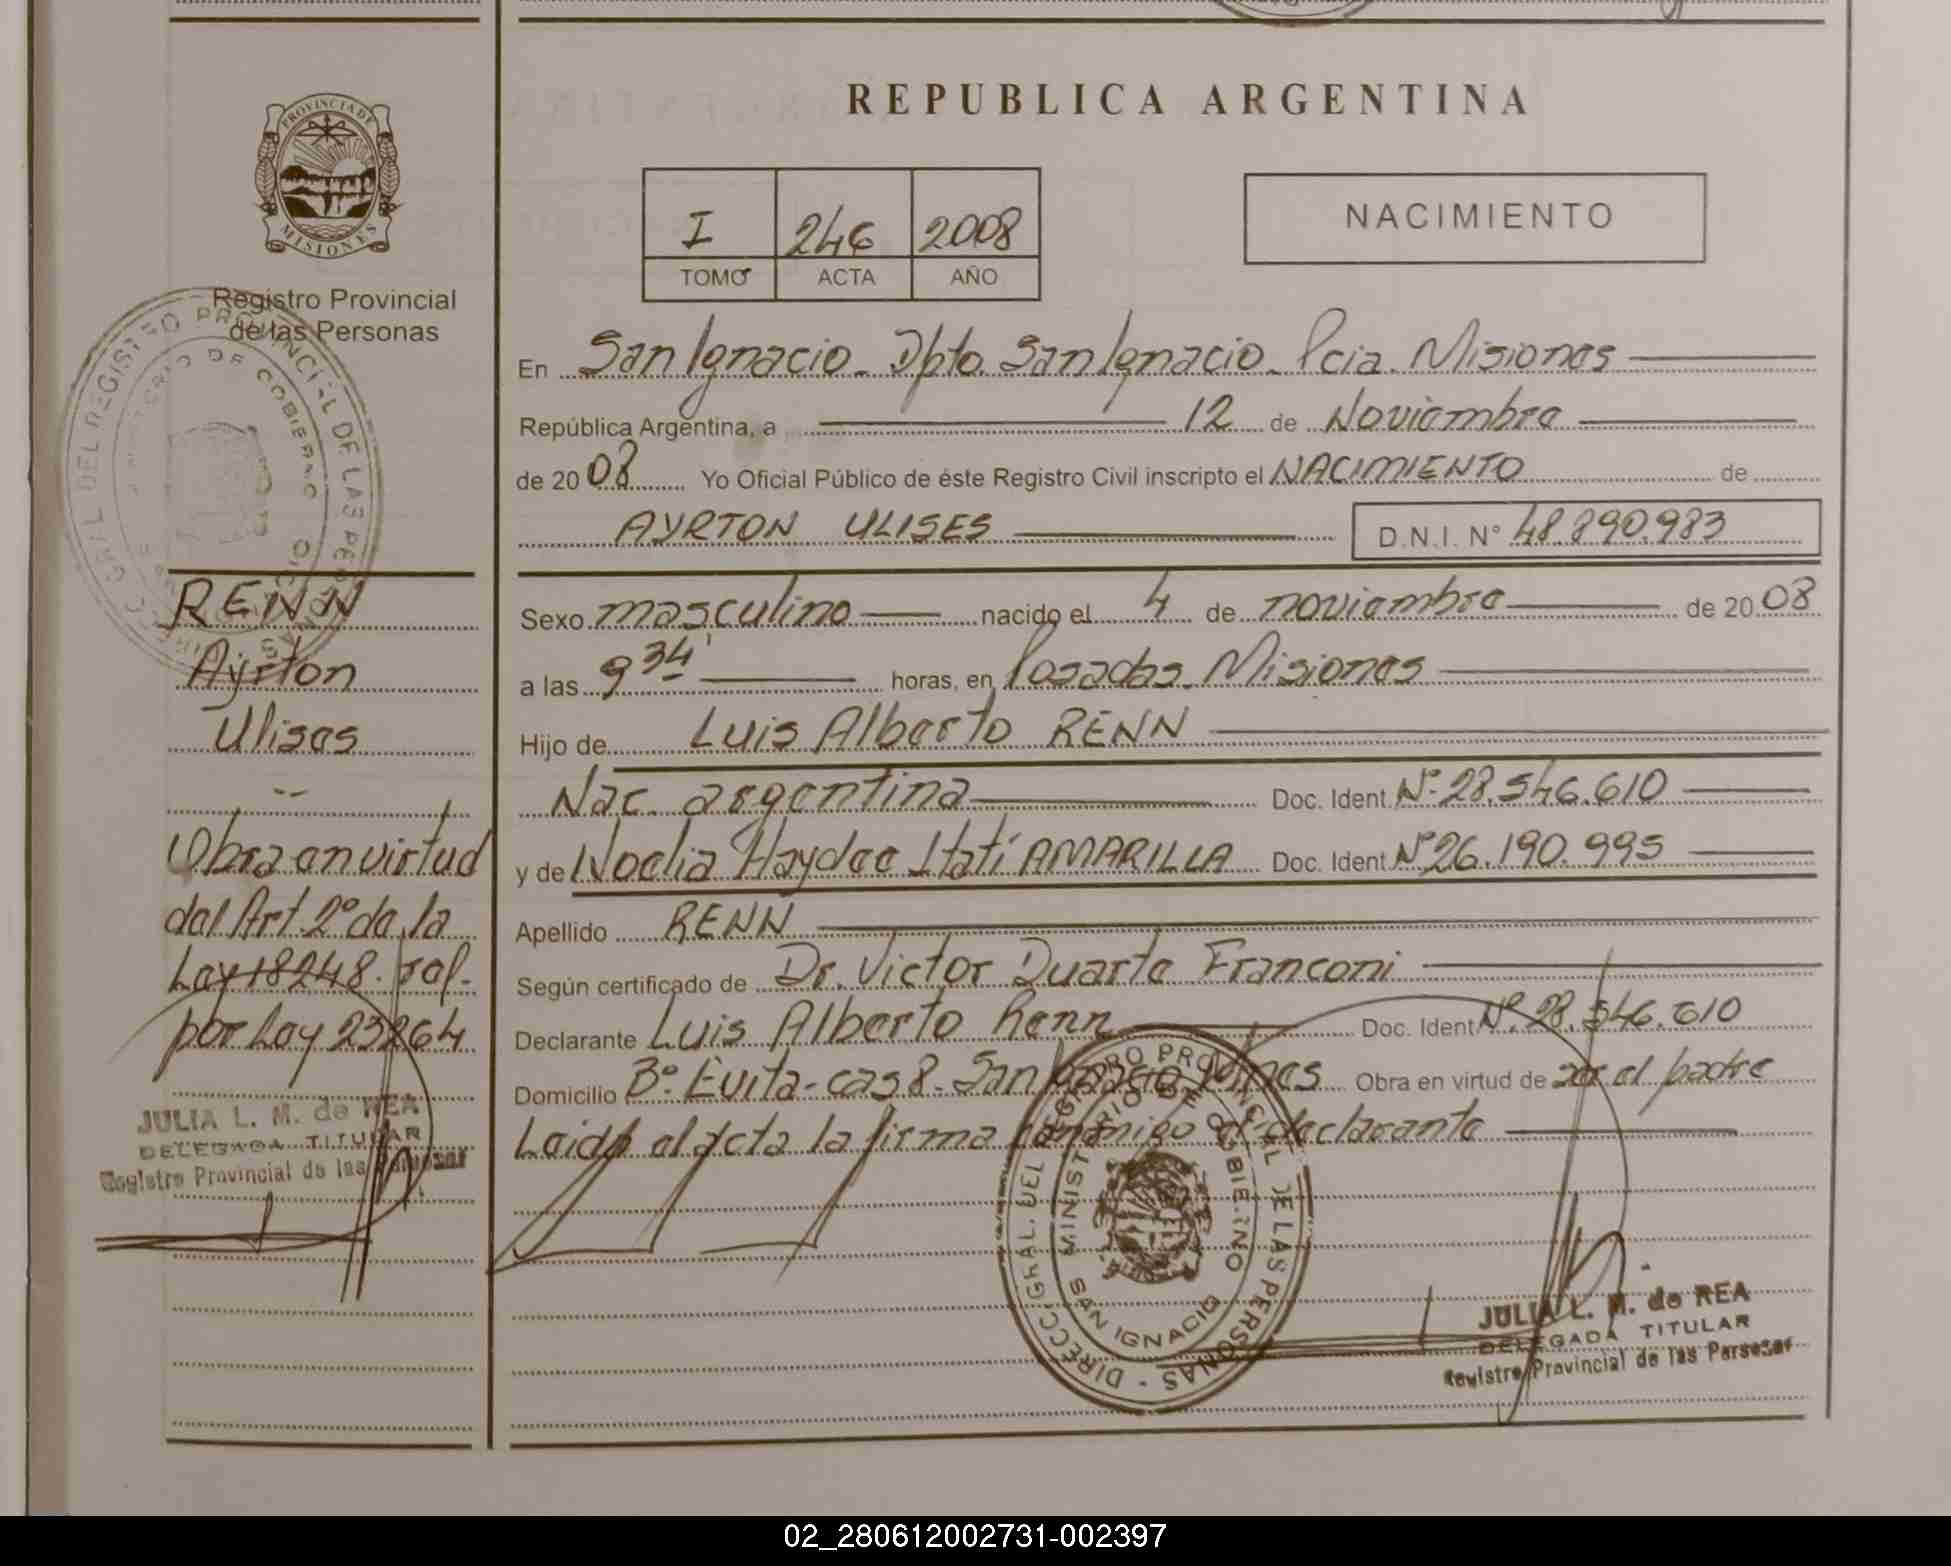 REPUBLICA ARGENTINA
PROVINCIA DE MISIONES
Registro Provincial
de las Personas
I 246 2008
TOMO ACTA AÑO
NACIMIENTO
En San Ignacio. Dpto. San Ignacio. Pcia. Misiones
República Argentina, a 12 de Noviembre
de 2008 Yo Oficial Público de éste Registro Civil inscripto el NACIMIENTO de
AYRTON ULISES D.N.I. N° 48.890.983
Sexo masculino nacido el 4 de noviembre de 2008
a las 9 34' horas, en Posadas. Misiones
Hijo de Luis Alberto RENN
Nac. argentina Doc. Ident. N° 28.546.610
y de Noelia Haydee Itatí AMARILLA Doc. Ident. N° 26.190.995
Apellido RENN
Según certificado de Dr. Victor Duarte Franconi
Declarante Luis Alberto Renn Doc. Ident. N° 28.546.610
Domicilio B° Evita - cas 8. San Ignacio Mnes Obra en virtud de ser el padre
Leida el acta la firma conmigo el declarante
RENN
Ayrton
Ulises
Obra en virtud
del Art. 2° de la
Ley 18248. ref.
por Ley 23264
JULIA L. M. de REA
DELEGADA TITULAR
Registro Provincial de las Personas
DIRECC. GRAL. DEL REGISTRO PROVINCIAL DE LAS PERSONAS
MINISTERIO DE GOBIERNO
SAN IGNACIO
JULIA L. M. de REA
DELEGADA TITULAR
Registro Provincial de las Personas
02_280612002731-002397